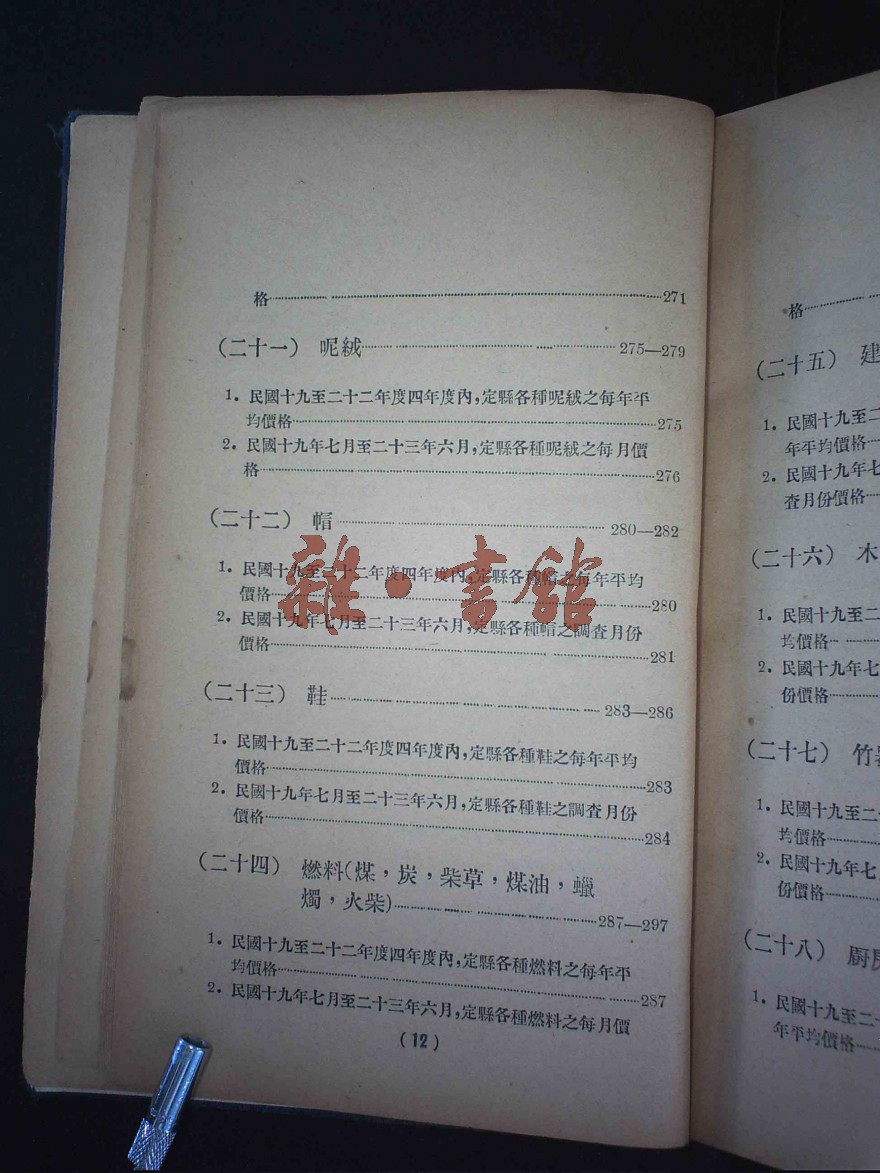 格……271
(二十一) 呢絨……275—279
1. 民國十九至二十二年度四年度內,定縣各種呢絨之每年平
均價格……275
2. 民國十九年七月至二十三年六月,定縣各種呢絨之每月價
格……276
(二十二) 帽……280—282
1. 民國十九至二十二年度四年度內,定縣各種帽之每年平均
價格……280
2. 民國十九年七月至二十三年六月,定縣各種帽之調查月份
價格……281
(二十三) 鞋……283—286
1. 民國十九至二十二年度四年度內,定縣各種鞋之每年平均
價格……283
2. 民國十九年七月至二十三年六月,定縣各種鞋之調查月份
價格……284
(二十四) 燃料(煤,炭,柴草,煤油,蠟
燭,火柴)……287—297
1. 民國十九至二十二年度四年度內,定縣各種燃料之每年平
均價格……287
2. 民國十九年七月至二十三年六月,定縣各種燃料之每月價
(12)
雜·書館
格……
(二十五) 建
1. 民國十九至二
年平均價格……
2. 民國十九年七
查月份價格……
(二十六) 木
1. 民國十九至二
均價格……
2. 民國十九年七
份價格……
(二十七) 竹
1. 民國十九至二
均價格……
2. 民國十九年七
份價格……
(二十八) 廚房
1. 民國十九至二十
年平均價格……